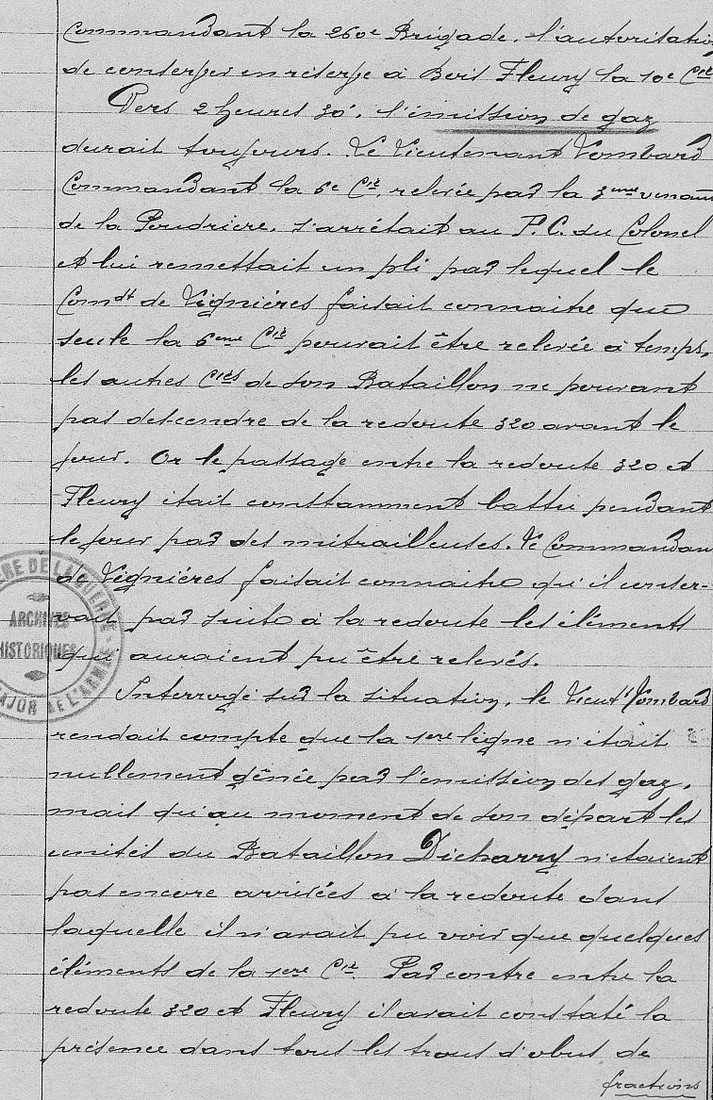 Commandant la 260e Brigade, l'autorisation
de conserver en réserve à Bois Fleury la 10e Cie
Vers 2 heures 30', l'émission de gaz
durait toujours. Le Lieutenant Vombard
Commandant la 6e Cie, relevée par la 3ème venant
de la Poudrière, s'arrêtait au P.C. du Colonel
et lui remettait un pli par lequel le
Comdt de Vignières faisait connaître que
seule la 6ème Cie pouvait être relevée à temps,
les autres Cies de son Bataillon ne pouvant
pas descendre de la redoute 320 avant le
jour. Or le passage entre la redoute 320 et
Fleury était constamment battu pendant
le jour par des mitrailleuses. Le Commandant
de Vignières faisait connaître qu'il conser-
vait par suite à la redoute les éléments
qui auraient pu être relevés.
Interrogé sur la situation, le Lieutt Vombard
rendait compte que la 1ère ligne n'était
nullement gênée par l'émission des gaz,
mais qu'au moment de son départ les
unités du Bataillon Dicharry n'étaient
pas encore arrivées à la redoute dans
laquelle il n'avait pu voir que quelques
éléments de la 1ere Cie. Par contre entre la
redoute 320 et Fleury il avait constaté la
présence dans tous les trous d'obus de
fractions
ARCHIVES
HISTORIQUES
RE DE LA GUERRE
MAJOR DE L'ARMÉE